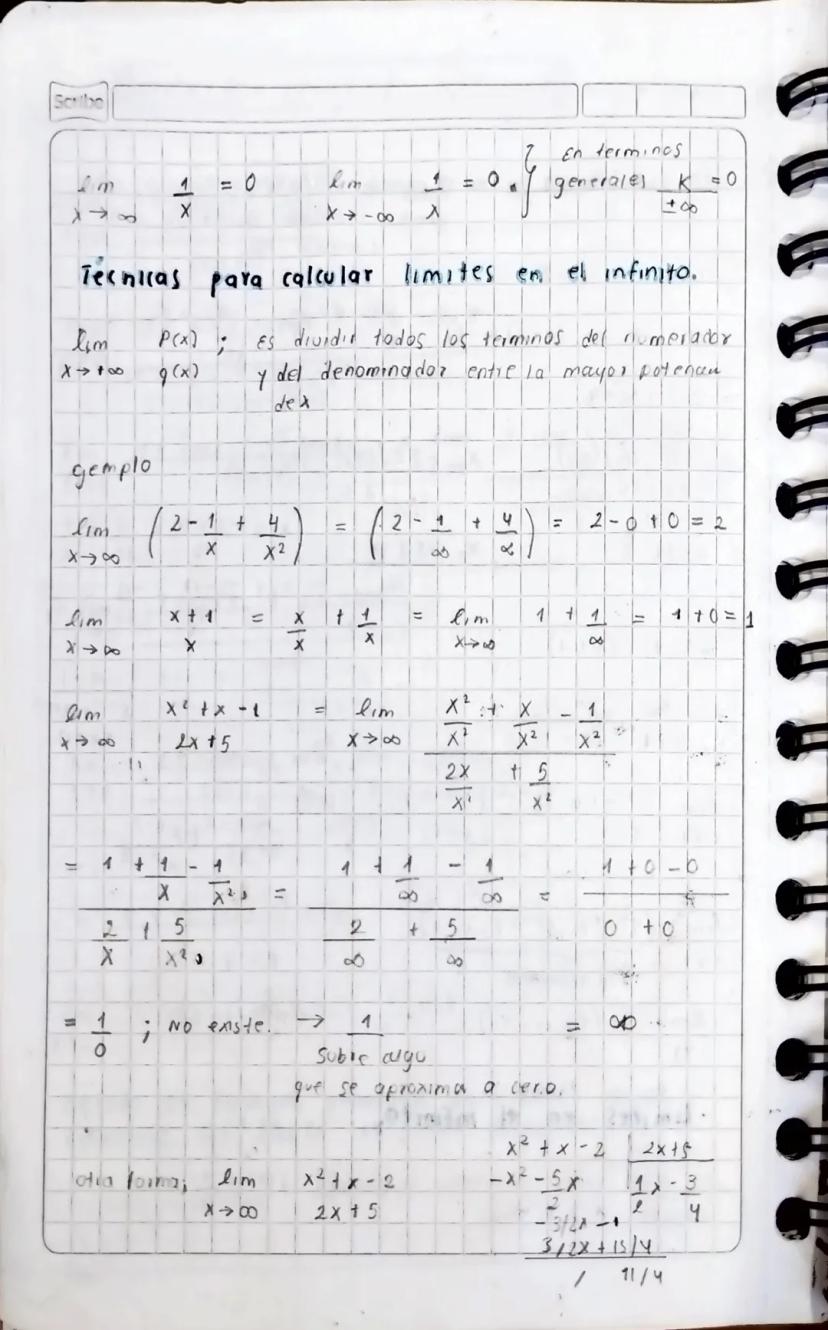 Scribe
lim x→∞ 1/x = 0 lim x→-∞ 1/x = 0 . } En terminos generales K/±∞ = 0
Técnicas para calcular limites en el infinito.
lim P(x) ; es dividir todos los terminos del numerador
x→+∞ q(x) y del denominador entre la mayor potencia
de x
gemplo
lim x→∞ (2 - 1/x + 4/x²) = (2 - 1/∞ + 4/∞) = 2 - 0 + 0 = 2
lim x→∞ x+1 / x = x/x + 1/x = lim x→∞ 1 + 1/∞ = 1+0 = 1
lim x→∞ x²+x-1 / 2x+5 = lim x→∞ (x²/x² + x/x² - 1/x²) / (2x/x² + 5/x²)
= (1 + 1/x - 1/x²) / (2/x + 5/x²) = (1 + 1/∞ - 1/∞) / (2/∞ + 5/∞) = (1+0-0) / (0+0)
= 1/0 ; No existe. → 1 = ∞
sobre algo
que se aproxima a cero.
otra forma; lim x→∞ x²+x-2 / 2x+5
x²+x-2 | 2x+5
-x² - 5/2 x 1/2 x - 3/4
-3/2x -1
3/2x + 15/4
/ 11/4